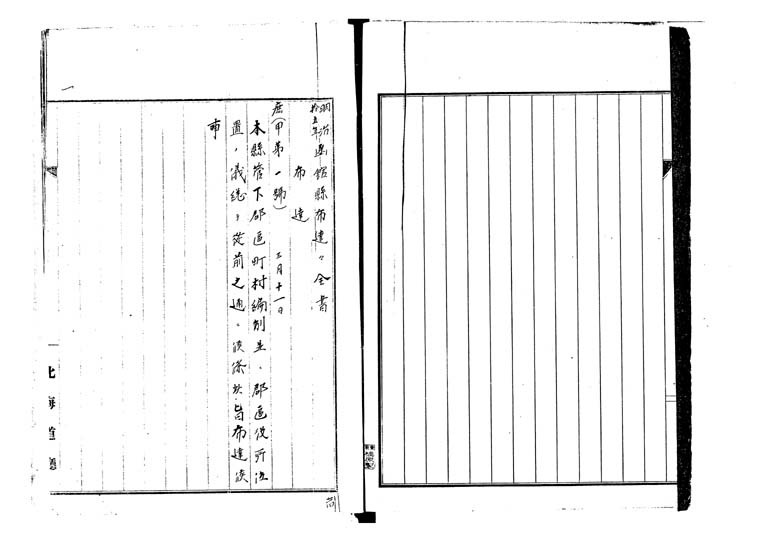 明治
拾五年 函館縣布達々全書
布達
庶(甲第一號) 三月十一日
本縣管下郡區町村編制並、郡區役所位
置ノ儀總テ從前之通リ候條此旨布達候
事
北海道廳